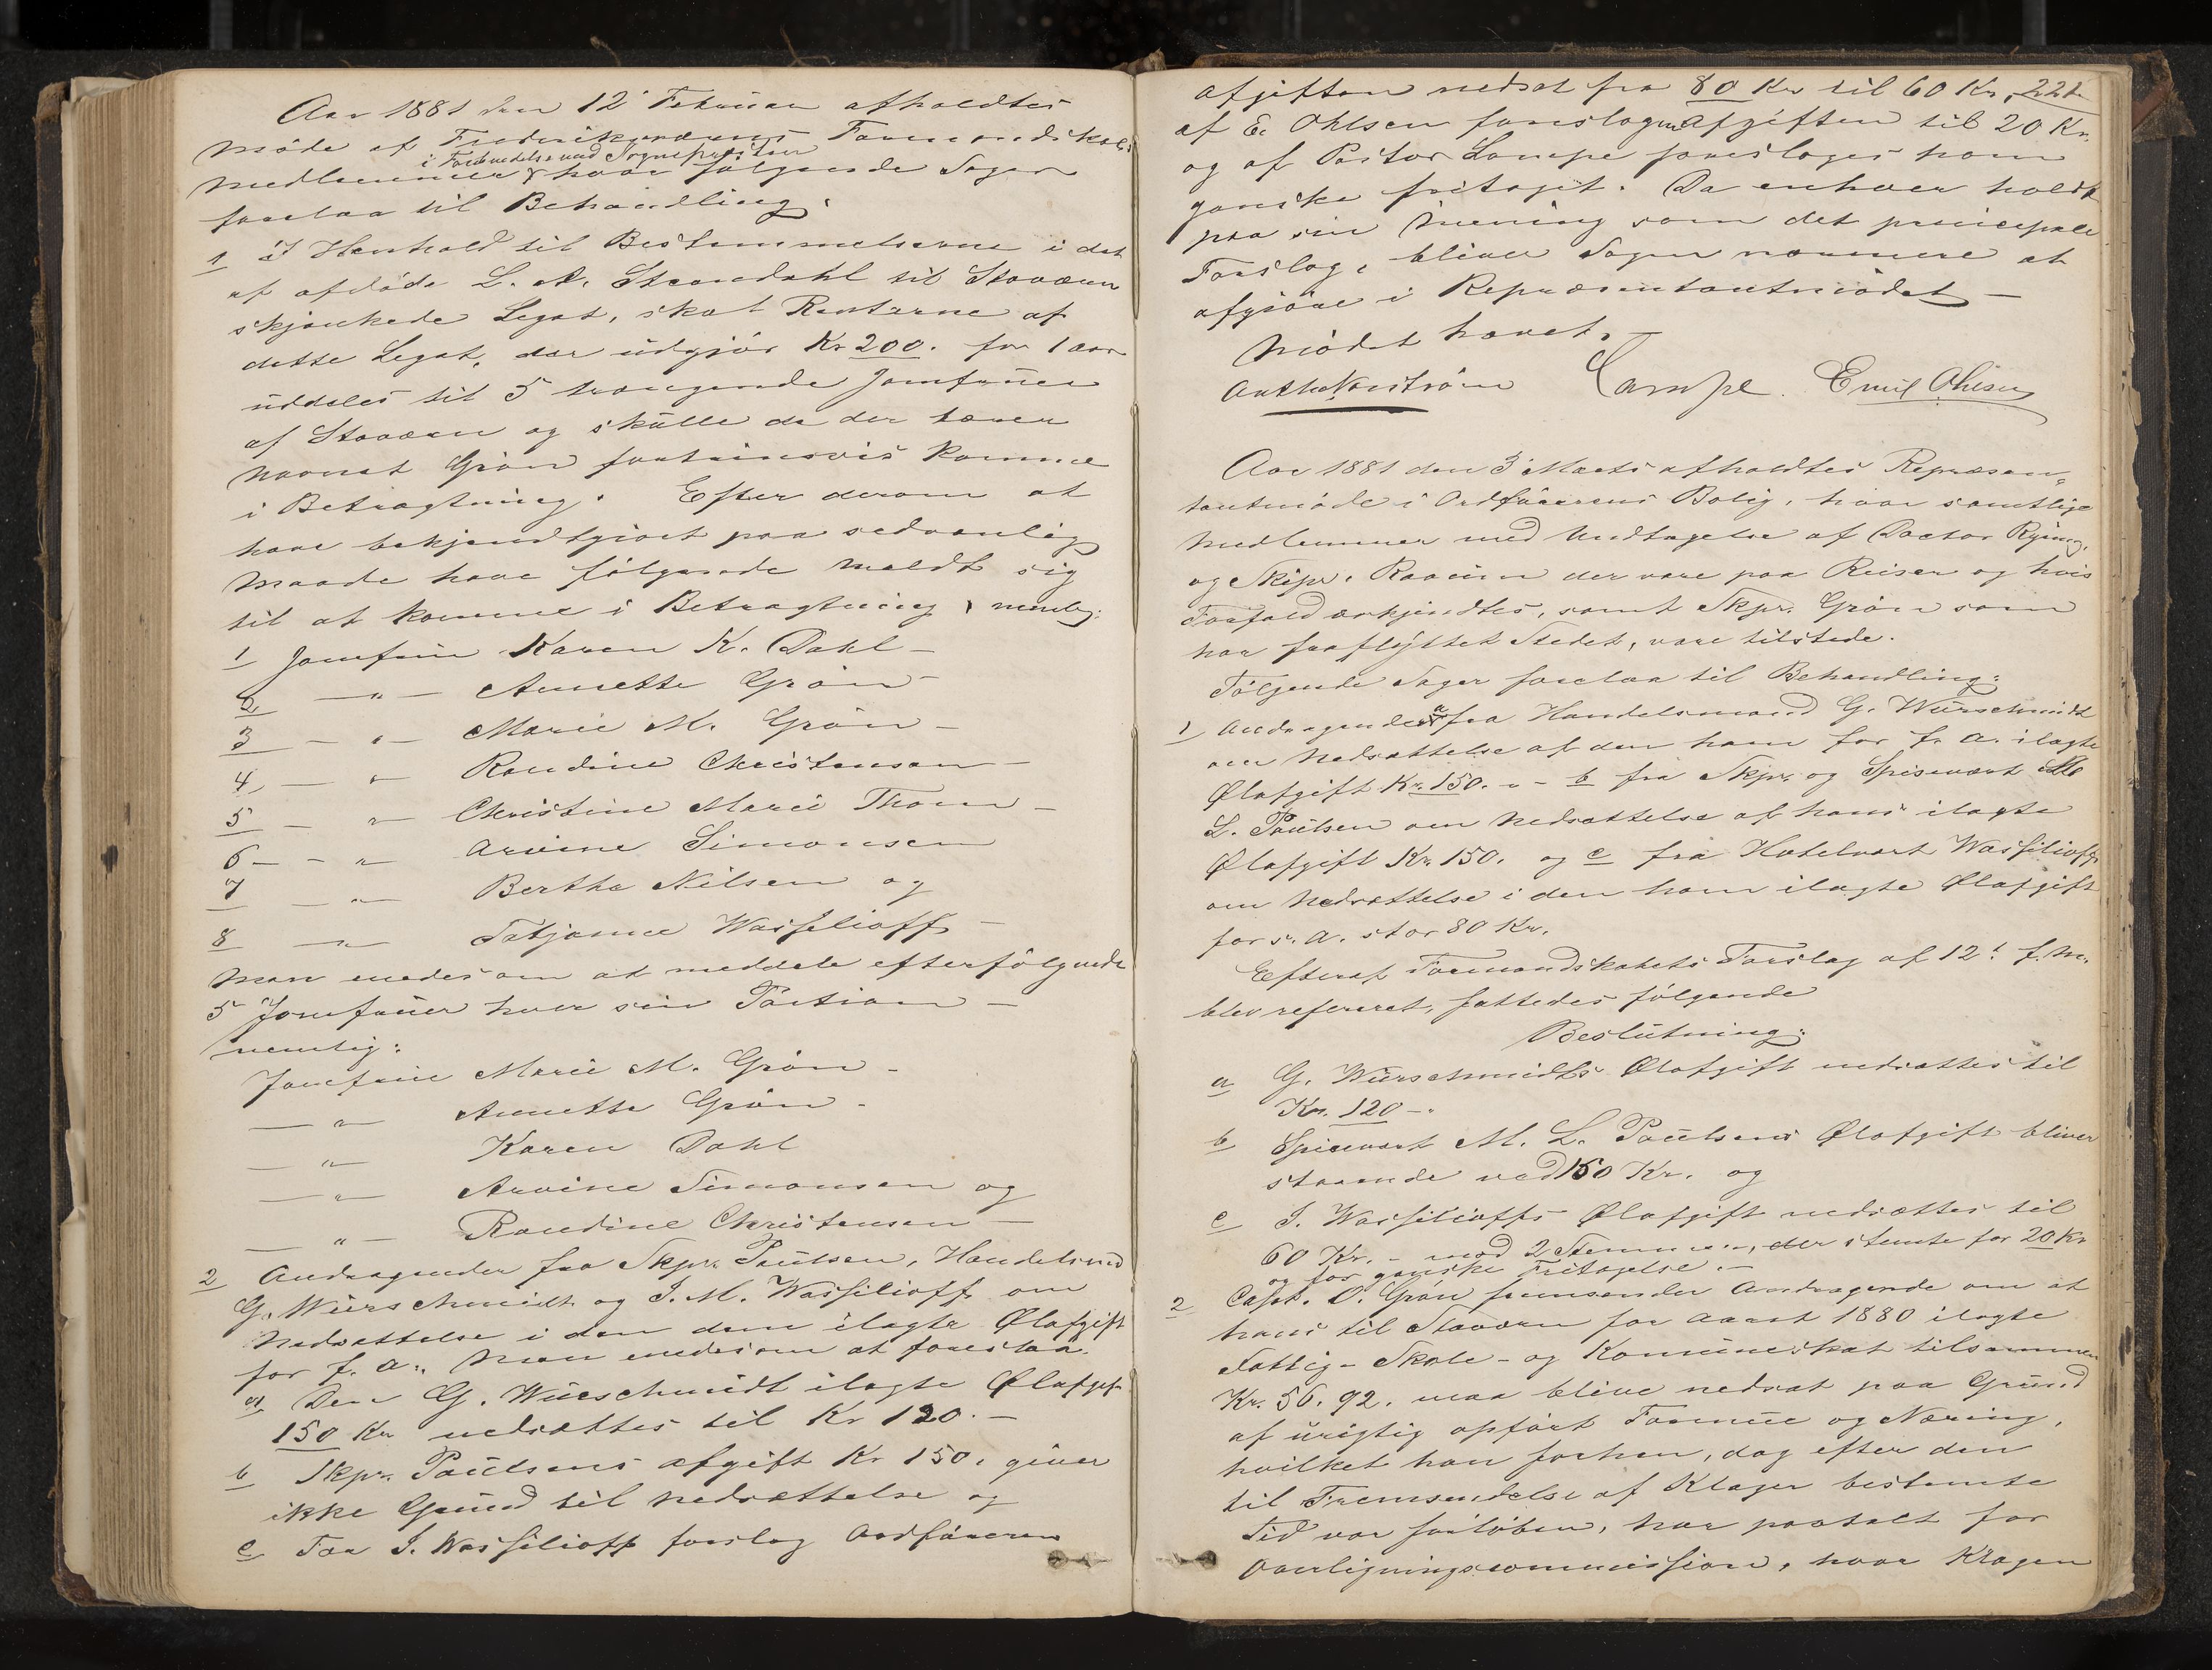 Aar 1881 den 12 Februar afholdtes
Møde af Frederiksværns Formandskabs
i Forbindelse med Sognepresten
medlemmer & hvor følgende Sager
foretaa til Behandling:
1 I Henhold til Bestemmelserne i det
af afdøde L. A. Strandahl til Staværn
skjænkede Legat, skal Renterne af
dette Legat, der udgjør Kr 200. for 1 aar
uddeles til 5 trængende Jomfruer
af Staværn og skulle de der bærer
Navnet Grøn fortrinsvis komme
i Betragtning. Efter derom at
have bekjendtgjort paa sedvanlig
Maade have følgende meldt sig
til at komme i Betragtning, nemlig:
1 Jomfrue Karen K. Dahl –
2 — " — Annette Grøn –
3 — " — Marie M. Grøn –
4 — " — Randine Christensen –
5 — " — Christine Marie Thom –
6 — " — Arvine Simonsen
7 — " — Bertha Nilsen og
8 — " — Tatjanne Wassilioff –
Man enedes om at meddele efterfølgende
5 Jomfruer hver sin Portion –
nemlig:
Jomfrue Marie M. Grøn –
— " — Annette Grøn –
— " — Karen Dahl
— " — Arvine Simonsen og
— " — Randine Christensen –
2 Andragender fra Skpr. Paulsen, Handelsmd
G. Würschmidt og I. M. Wassilioff om
Nedsættelse i den dem ilagte Ølafgift
for f. a.. Man enedes om at foreslaa:
a Den G. Würschmidt ilagte Ølafgift
150 Kr nedsættes til Kr 120. –
b Skpr. Paulsens afgift Kr 150. giver
ikke Grund til Nedsættelse og
c For I. Wassilioff forslog Ordføreren
afgiften nedsat fra 80 Kr til 60 Kr, 221.
af E. Ohlsen forslog afgiften til 20 Kr.
og af Pastor Lampe foresloges ham
ganske fritaget. Da enhver holdt
paa sin Mening som det principale
Forslag, bliver Sagen nærmere at
afgjøre i Repræsentantmødet –
Mødet hævet. –
Lampe. Emil Ohlsen
Aar 1881 den 3 Marts afholdtes Repræsen„
tantmøde i Ordførerens Bolig, hvor samtlige
Medlemmer med Undtagelse af Doctor Ryning,
og Skipr. der vare paa Reiser og hvis
Forfald erkjendtes, samt Skpr. Grøn som
har fraflyttet Stedet, vare tilstede.
Følgende Sager foretaa til Behandling:
1 Andragender a fra Handelsmand G. Würschmidt
om Nedsættelse af den ham for f. a. ilagte
Ølafgift Kr. 150. – b fra Skpr. og Spisevært M
L. Paulsen om Nedsættelse af hans ilagte
Ølafgift Kr. 150. og c fra Hotelvært Wassilioff
om Nedsættelse i den ham ilagte Ølafgift
for s. a. stor 80 Kr.
Efterat Formandskabets Forslag af 12t f. M.
blev refereret, fattedes følgende
Beslutning:
a G. Würschmidts Ølafgift nedsættes til
Kr. 120 –.
b Spisevært M. L. Paulsens Ølafgift bliver
staaende ved 150 Kr. og
c I. Wassilioffs Ølafgift nedsættes til
60 Kr. – mod 2 Stemmer, der stemte for 20 Kr
og for ganske Fritagelse. –
2 Capt. O. Grøn fremsender Andragende om at
hans til Stavern for Aaret 1880 ilagte
Fattig- Skole- og Komuneskat tilsammen
Kr. 56. 92. maa blive nedsat paa Grund
af urigtig opført Formue og Næring,
hvilket han forhen, dog efter den
til Fremsendelse af Klager bestemte
Tid var forløben, har paatalt for
Overligningscommission, hvor Klagen